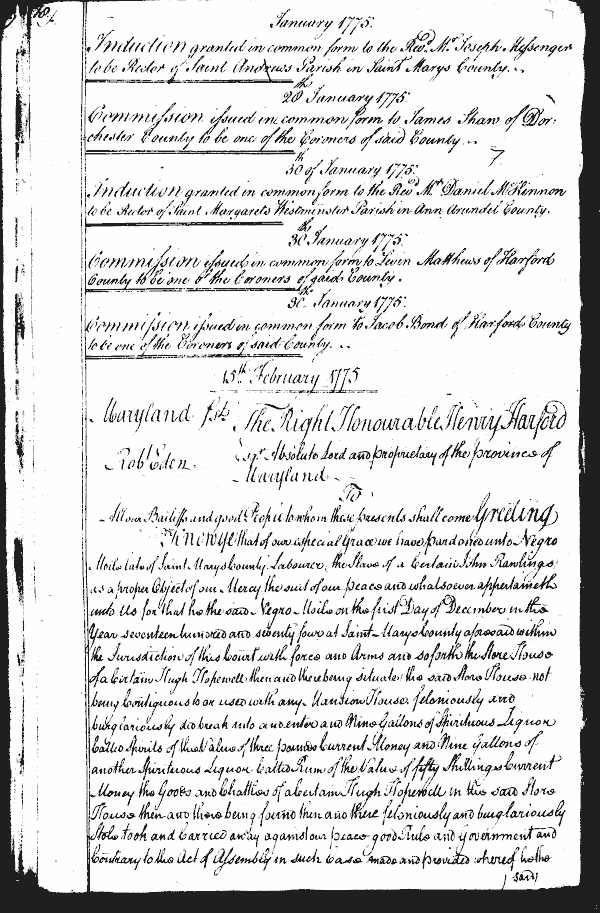 January 1775.
Induction granted in common form to the Revd. Mr. Joseph Messenger
to be Rector of Saint Andrews Parish in Saint Marys County.
28th January 1775
Commission issued in common form to James Shaw of Dor-
chester County to be one of the Coroners of said County
30th of January 1775.
Induction granted in common form to the Revd. Mr. Daniel McKinnon
to be Rector of Saint Margarets Westminster Parish in Ann Arundel County.
30th January 1775.
Commission issued in common form to Levin Matthews of Harford
County to be one of the Coroners of said County.
30th January 1775.
Commission issued in common form to Jacob Bond of Harford County
to be one of the Coroners of said County.
15th February 1775
Maryland sst. The Right Honourable Henry Harford
Robt. Eden Esqr. Absolute Lord and proprietary of the province of
Maryland
To
All our Bailiffs and good People to whom these presents shall come Greeting
Know ye that of our especial Grace we have pardoned unto Negro
Milo late of Saint Marys County Labourer, the Slave of a Certain John Rawlings
as a proper Object of our Mercy the suit of our peace and whatsoever appertaineth
unto Us for that he the said Negro Milo on the first Day of December in the
Year seventeen hundred and seventy four at Saint Marys County aforesaid within
the Jurisdiction of this Court with force and Arms and so forth the Store House
of a Certain Hugh Hopewell then and there being situate the said Store House not
being Contiguous to or used with any Mansion House feloniously and
burglariously did break into and enter and Nine Gallons of Spirituous Liquor
Called Spirits of the Value of three pounds Current Money and Nine Gallons of
another Spirituous Liquor Called Rum of the Value of fifty Shillings Current
Money the Goods and Chattles of a Certain Hugh Hopewell in the said Store
House then and there being found then and there feloniously and burglariously
Stole took and Carried away against our peace good Rule and Government and
Contrary to the Act of Assembly in such Case made and provided whereof he the
said